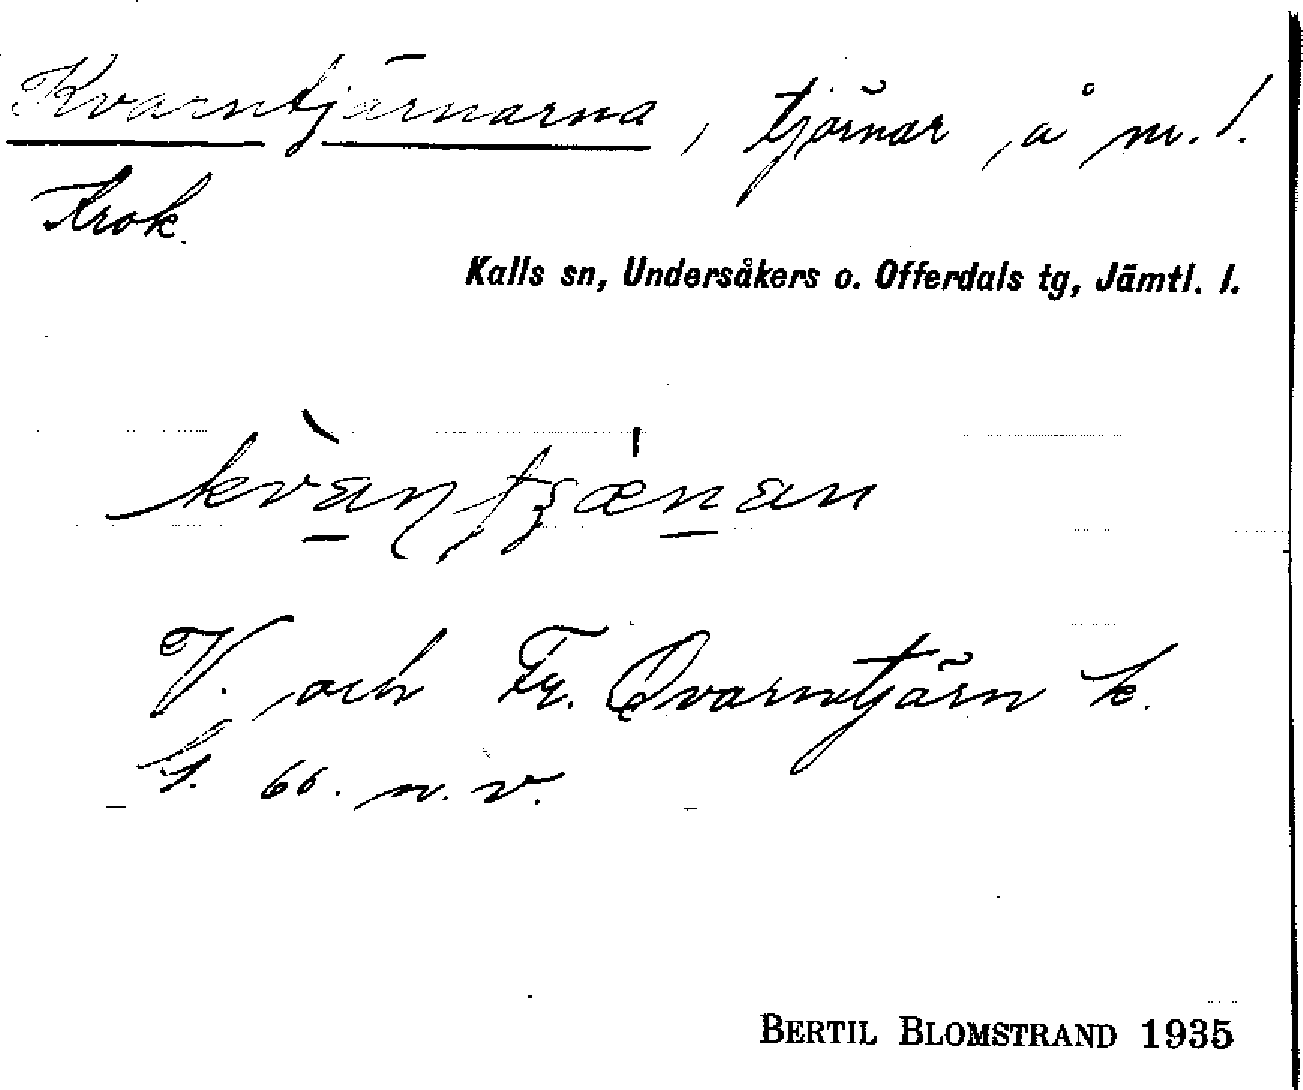 Kvarntjärnarna, tjärnar å nr. 1.
Krok.
Kalls sn, Undersåkers o. Offerdals tg, Jämtl. l.
V. och Qvarntjärn k.
bl. 66. n. v.
BERTIL BLOMSTRAND 1935